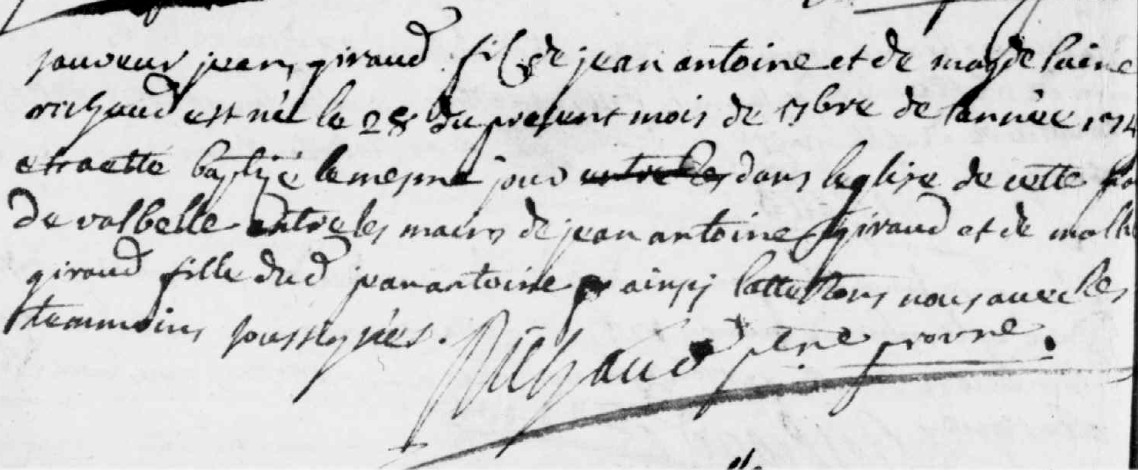 sauveur jean giraud fils de jean antoine et de magdelaine
richaud est né le 28 du present mois de 7bre de lannée 174
et a etté baptisé le mesme jour entre les dans leglise de cette
de valbelle entre les mains de jean antoine giraud et de
giraud fille dud jean antoine ainsy lattestons nous avec les
temmoins soussignés. Richaud provre.